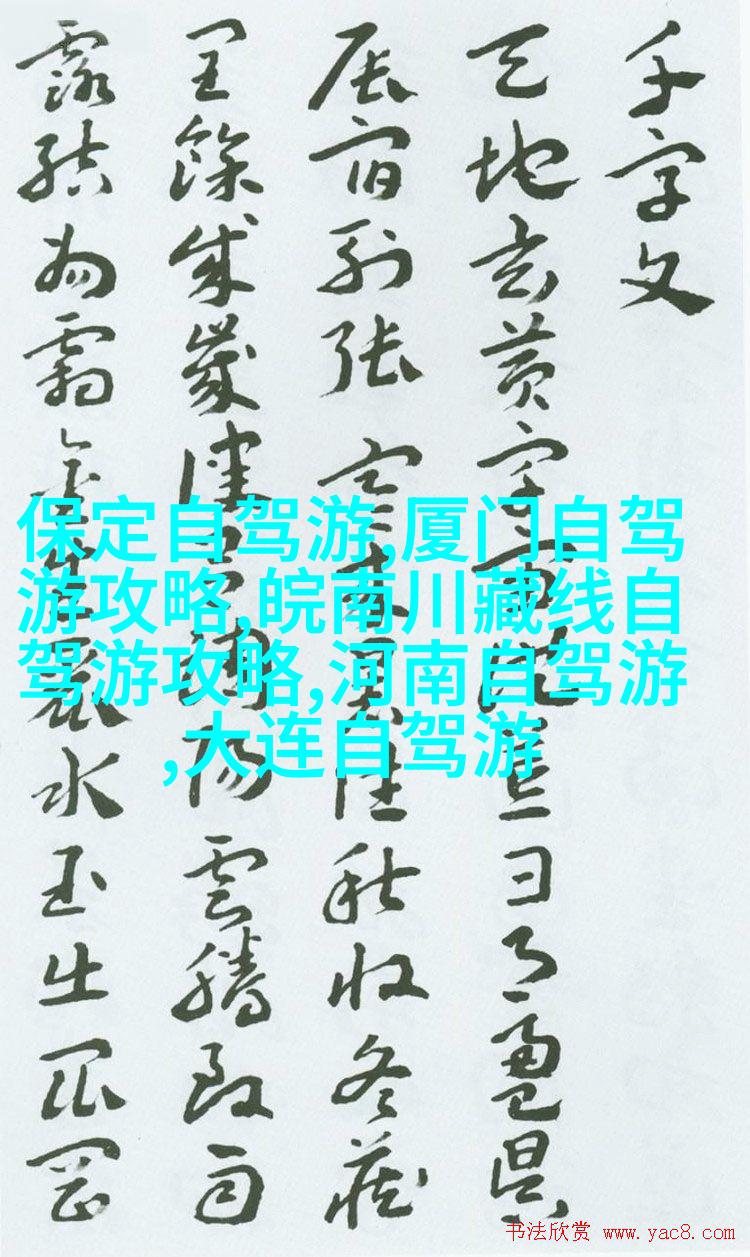 千字文
天地玄黄宇宙洪荒日月盈昃
辰宿列张寒来暑往秋收冬藏
閏餘成歲律吕調陽雲騰致雨
露結为霜金生麗水玉出崐岡
保定自驾游,厦门自驾
游攻略,皖南川藏线自
驾游攻略,河南自驾游
,大连自驾游
书法欣赏 www.yac8.com